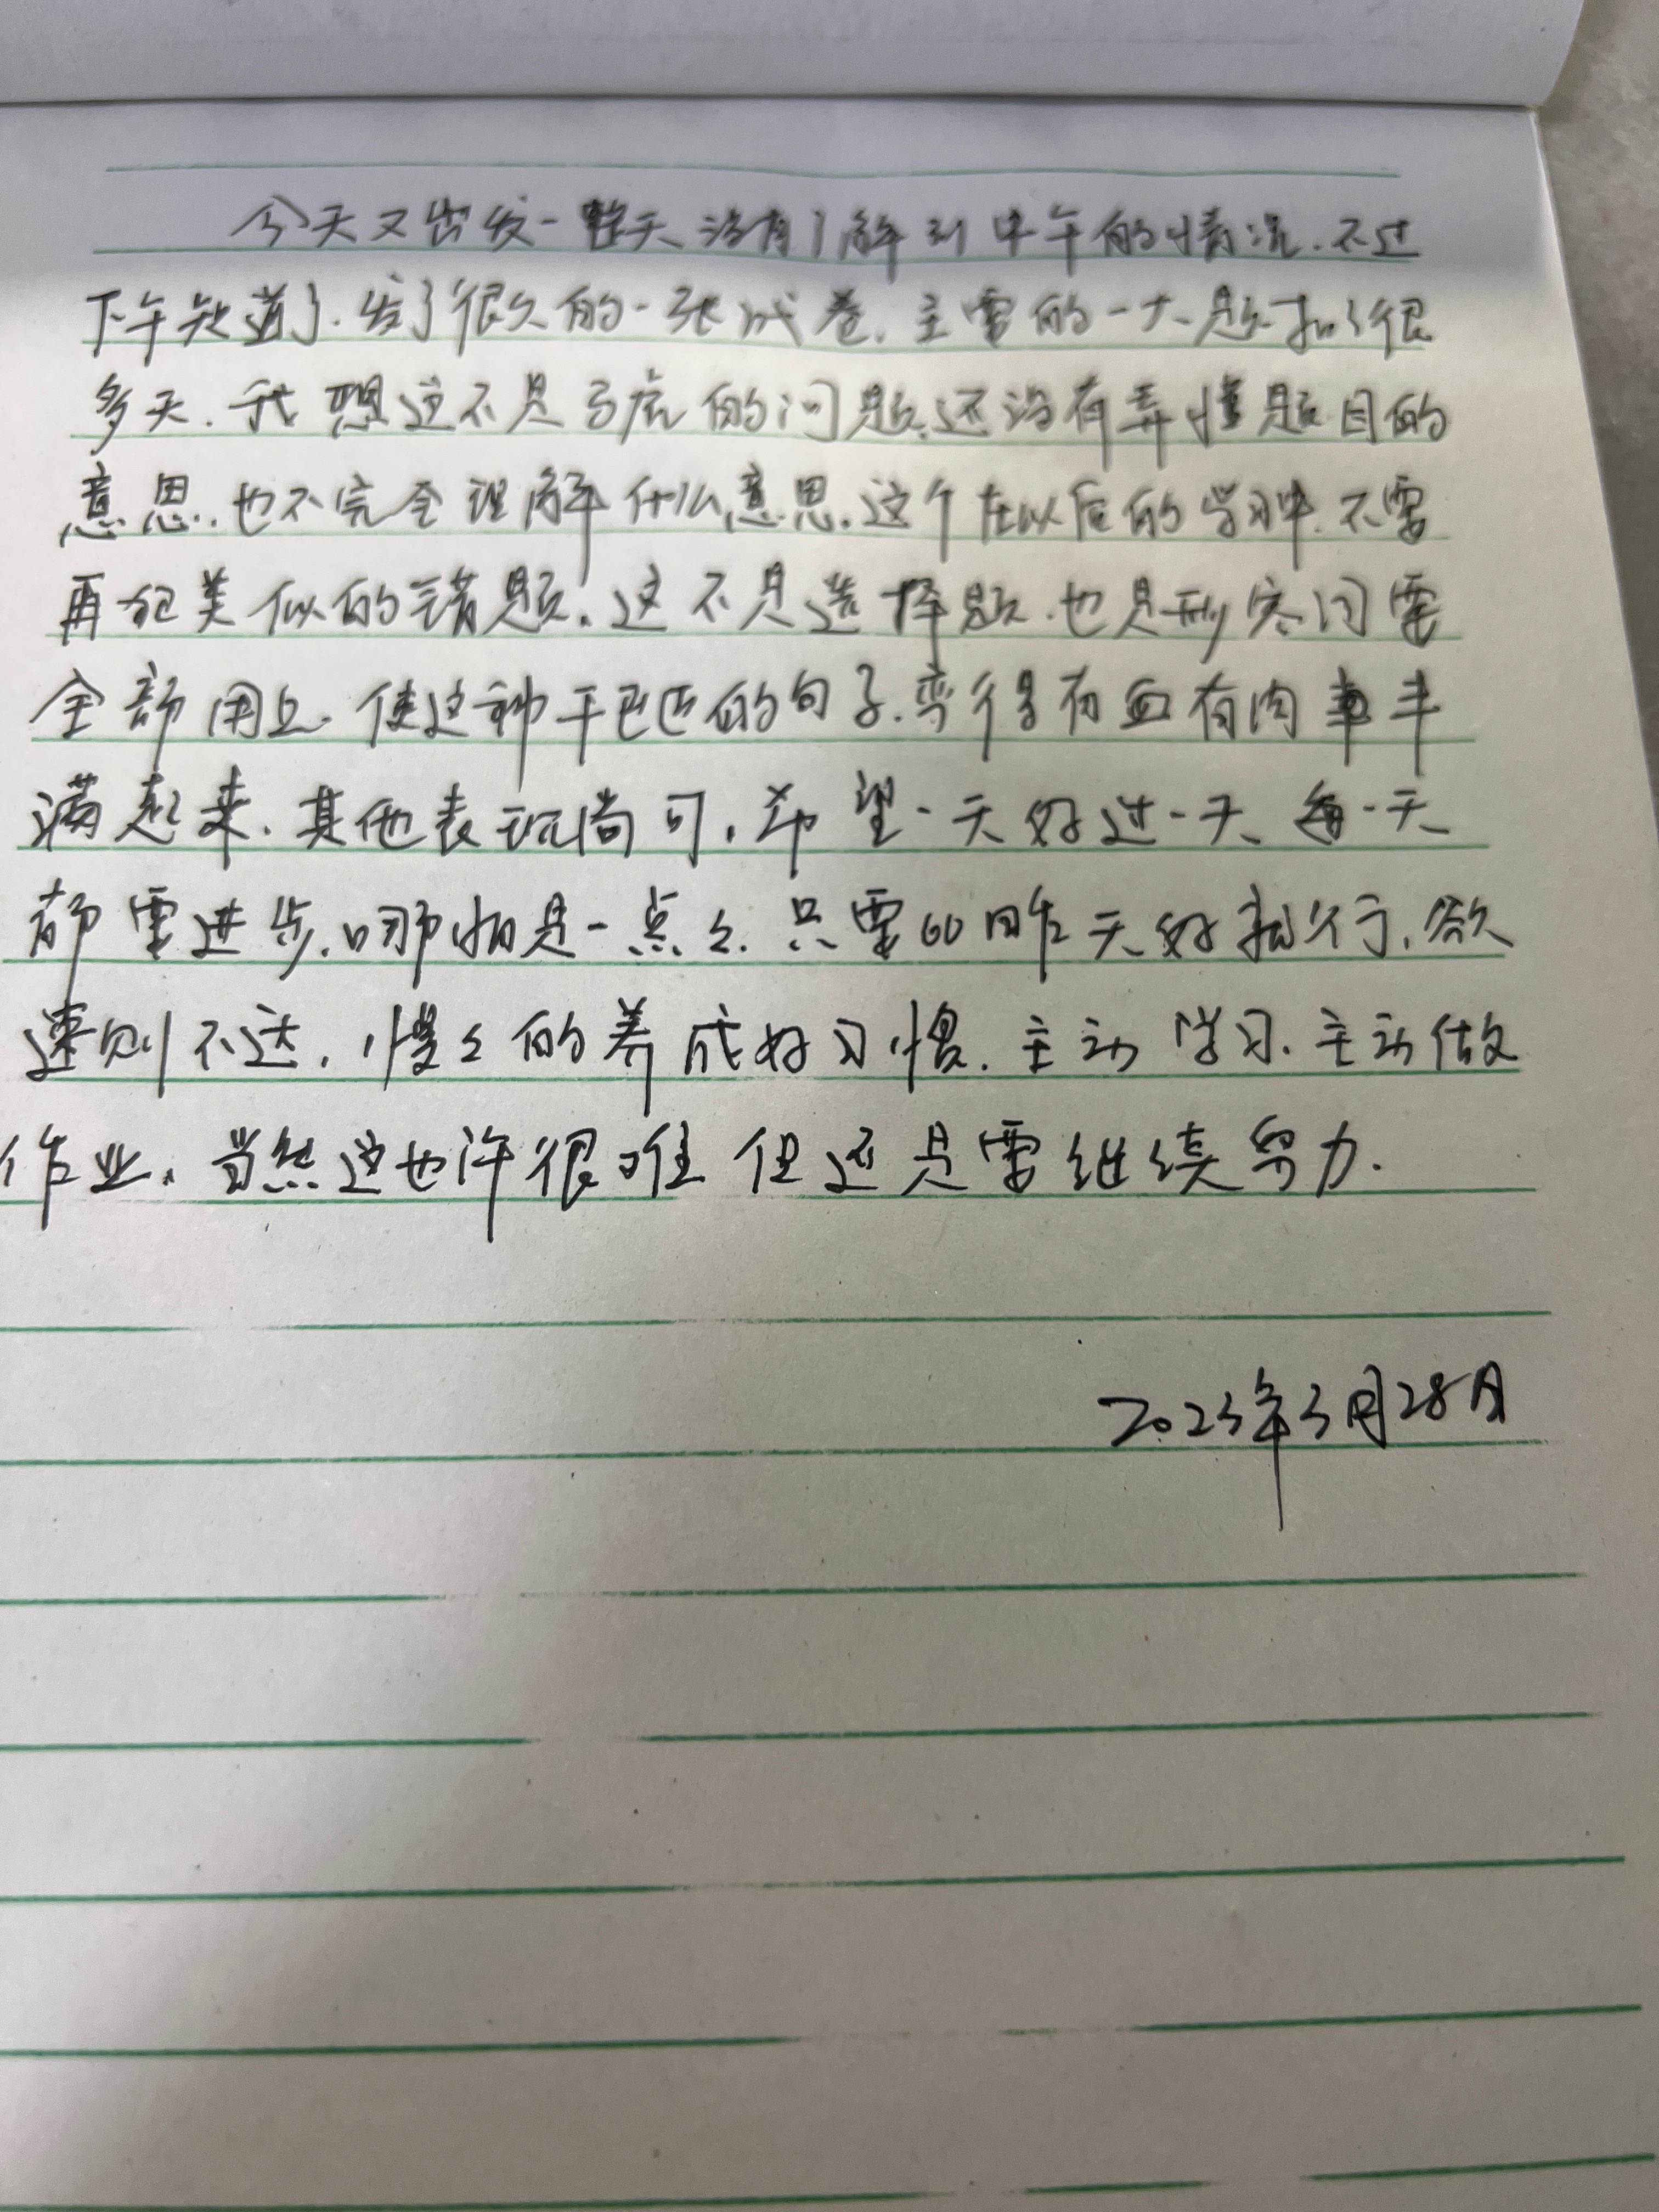 今天又出发一整天,没有了解到中午的情况.不过
下午知道了.发了很久的一张试卷.主要的一大题扣了很
多天.我想这不是马虎的问题.还没有弄懂题目的
意思.也不完全理解什么意思.这个在以后的学习中.不要
再犯类似的错题.这不是选择题.也是形容词要
全部用上.使这种干巴巴的句子.变得有血有肉丰
满起来.其他表现尚可.希望一天好过一天 每一天
都要进步.哪怕是一点点.只要比昨天好就行.欲
速则不达.慢慢的养成好习惯.主动学习.主动做
作业.当然这也许很难 但还是需继续努力.
2023年3月28日